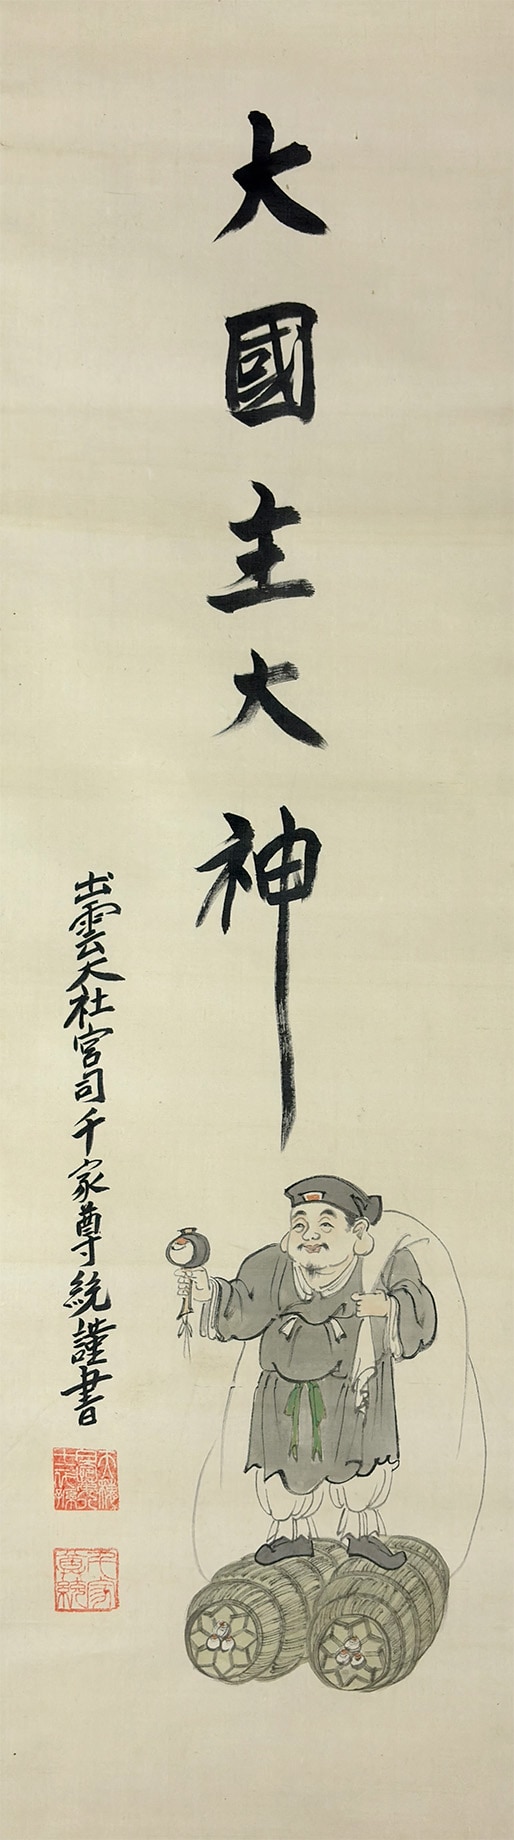 大國主大神
出雲大社宮司千家尊統謹書
千家尊統